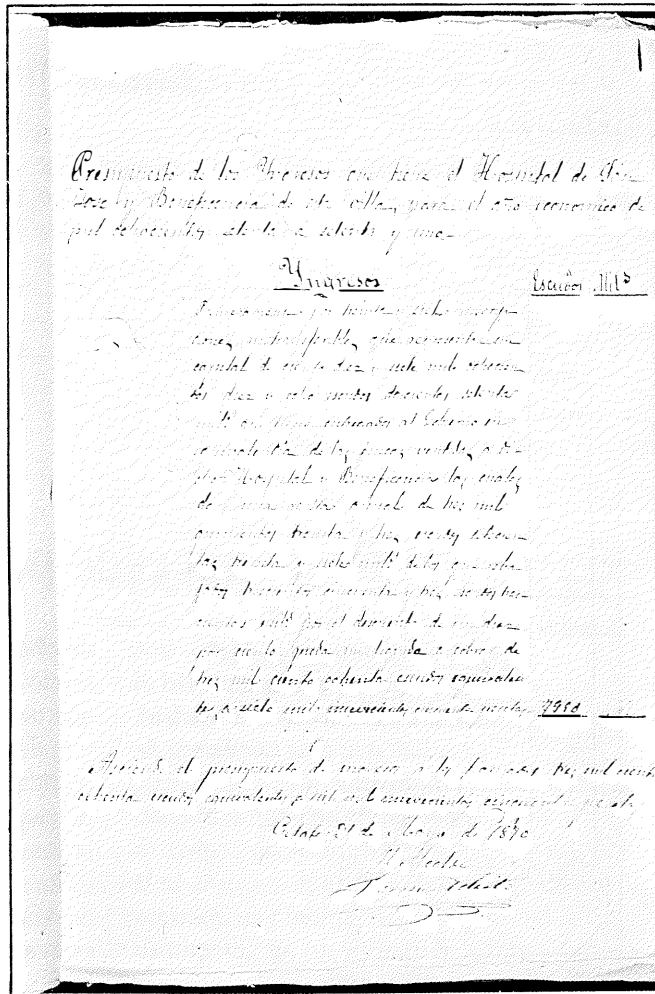 Presupuesto de los Yngresos que tiene el Hospital de San
José y Beneficencia de esta villa, para el año economico de
mil ochocientos setenta a setenta y uno
Yngresos Escudos Mils
Primeramente por treinta y siete inscrip-
ciones, intransferibles, que representan un
capital de ciento diez y siete mil ochocien-
tos diez y ocho escudos doscientos setenta
mils que tiene entregados el Gobierno en
equivalencia de las fincas vendidas a di-
cho Hospital y Beneficencia las cuales
de una renta anual de tres mil
quinientos treinta y tres escudos
tas treinta y siete mils de los que reba-
jados trescientos cincuenta y tres escudos tres-
mils por el descuento de un diez
por ciento queda en liquido a cobrar de
tres mil ciento ochenta escudos equivalen
tes a siete mil novecientas cincuenta pesetas 7950
Asciende el presupuesto de ingresos a los formados tres mil ciento
ochenta escudos equivalentes a siete mil novecientas cincuenta pesetas
Getafe 21 de Marzo de 1870
El Alcalde